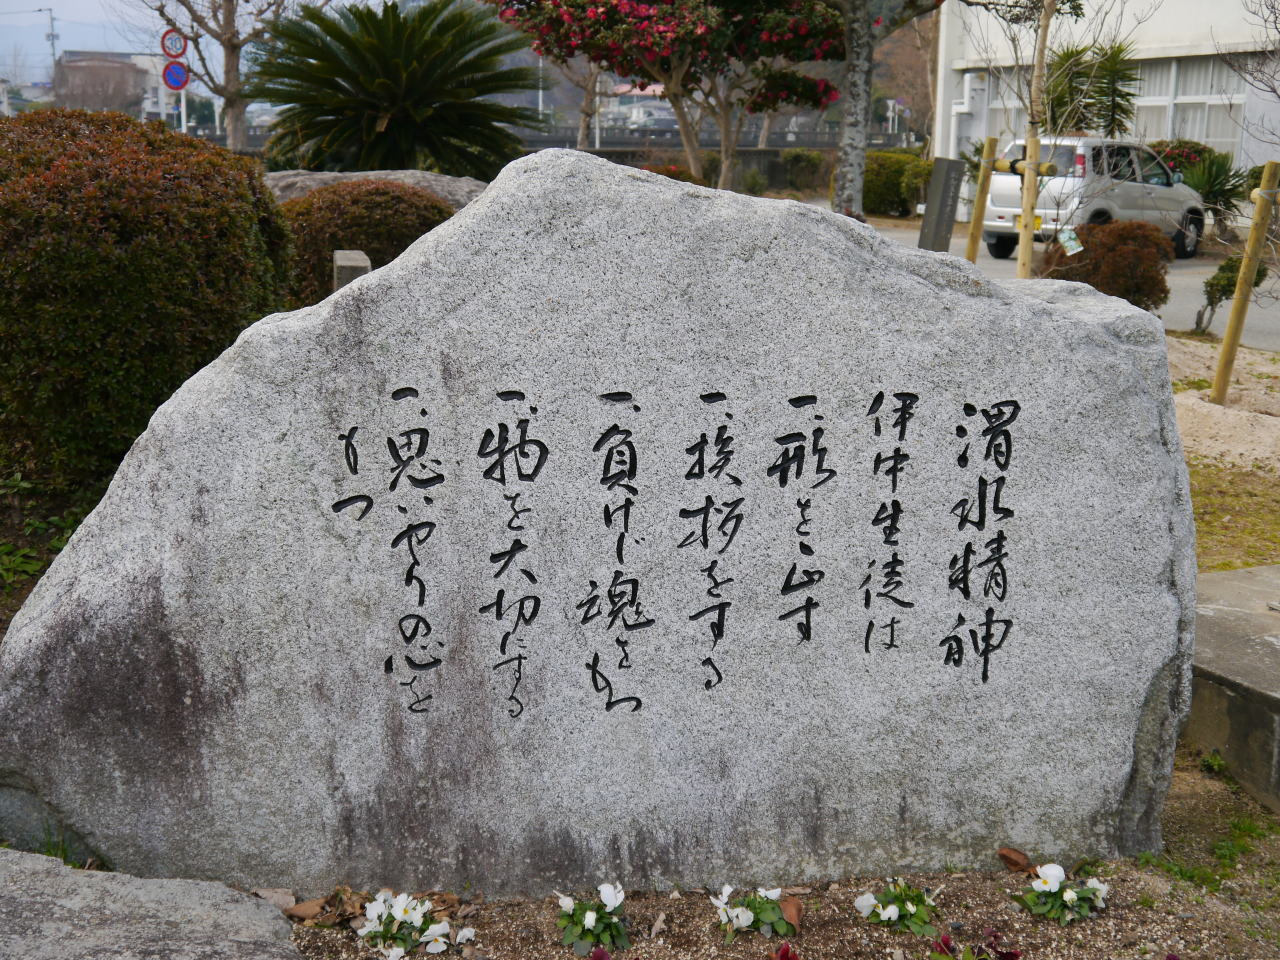 渭水精神
伊中生徒は
一、形を正す
一、挨拶をする
一、負けじ魂をもつ
一、物を大切にする
一、思いやりの心を
もつ
30